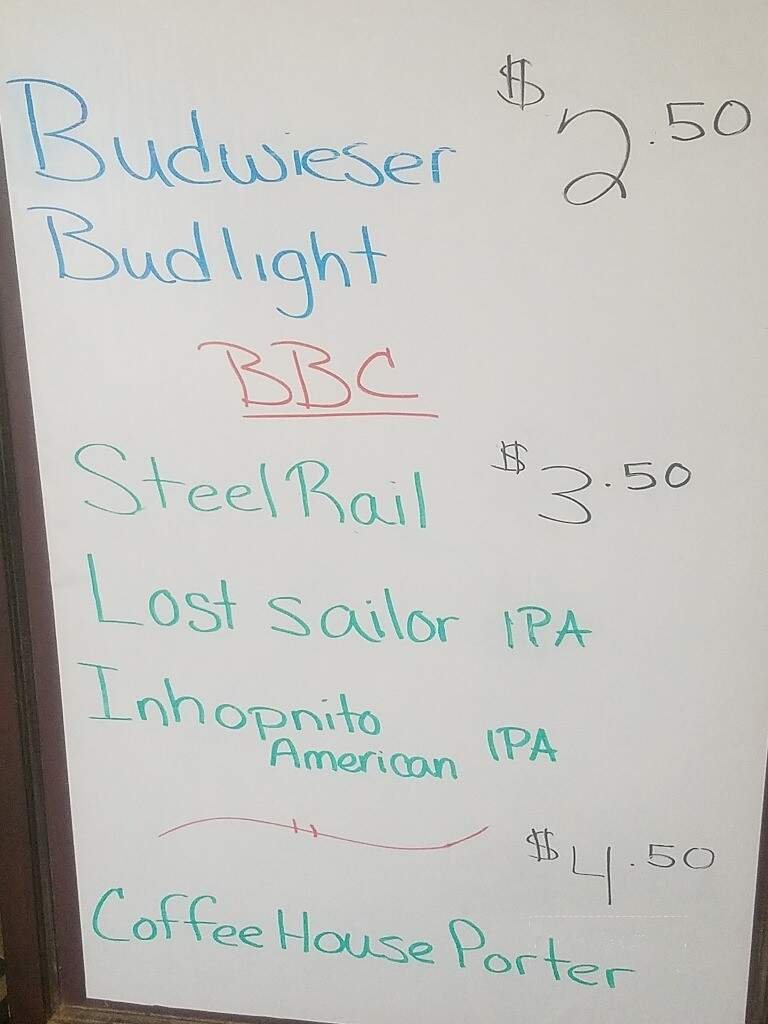 Budwieser $2.50
Budlight
BBC
Steel Rail $3.50
Lost Sailor IPA
Inhopnito
American IPA
$4.50
Coffee House Porter